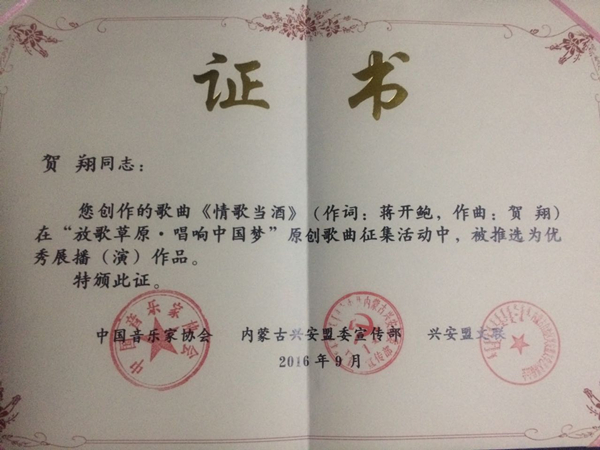 证 书
贺 翔同志：
您创作的歌曲《情歌当酒》（作词：蒋开鲍，作曲：贺 翔）
在“放歌草原·唱响中国梦”原创歌曲征集活动中，被推选为优
秀展播（演）作品。
特颁此证。
中国音乐家协会 内蒙古兴安盟委宣传部 兴安盟文联
2016年9月
中国音乐家协会